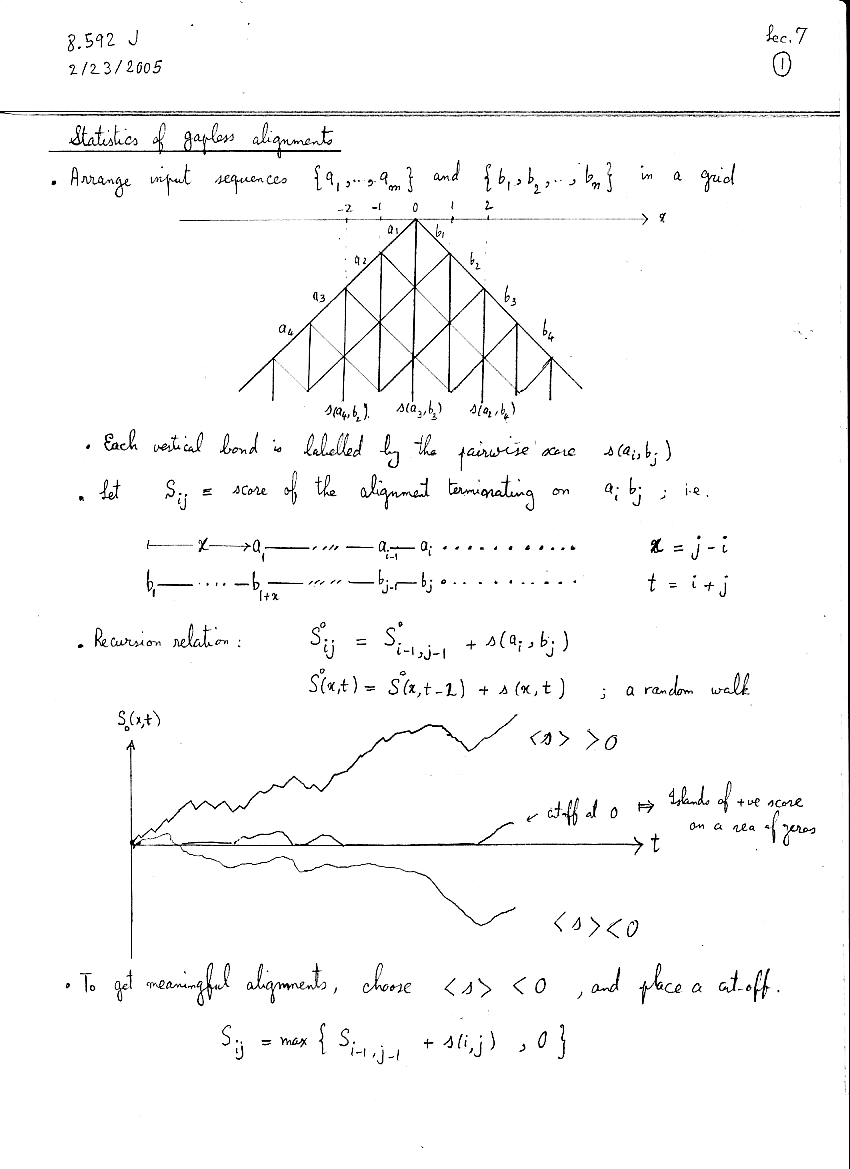 8.592 J
Lec. 7
2/23/2005
1
Statistics of gapless alignments
• Arrange input sequences {a₁,..,aₘ} and {b₁, b₂,.., bₙ} in a grid
-2 -1 0 1 2 x
a₁ b₁
a₂ b₂
a₃ b₃
a₄ b₄
s(a₄,b₂) s(a₃,b₃) s(a₂,b₄)
• Each vertical bond is labelled by the pairwise score s(aᵢ,bⱼ)
• Let Sᵢⱼ = score of the alignment terminating on aᵢ bⱼ ; i.e.
x a₁ .... aᵢ₋₁ aᵢ ............ x = j - i
b₁ .... b₁₊ₓ .... bⱼ₋₁ bⱼ ............ t = i + j
• Recursion relation: S°ᵢⱼ = S°ᵢ₋₁,ⱼ₋₁ + s(aᵢ,bⱼ)
S°(x,t) = S°(x,t-2) + s(x,t) ; a random walk
S₀(x,t)
<s> > 0
cut-off at 0 ⇒ Islands of +ve score
on a sea of zeros
t
<s> < 0
• To get meaningful alignments, choose <s> < 0 , and place a cut-off.
Sᵢⱼ = max { Sᵢ₋₁,ⱼ₋₁ + s(i,j) , 0 }